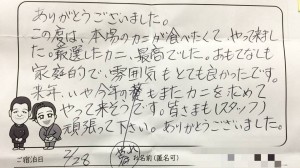 ありがとうございました。
この度は、本場のカニが食べたくて、やって来まし
た。厳選したカニ、最高でした。おもてなしも
家庭的で、雰囲気もとても良かったです。
来年、いや今年の暮もまたカニを求めて
やって来そうです。皆さまも(スタッフ)
頑張って下さい。ありがとうございました。
ご宿泊日 2/28 お名前(匿名可)